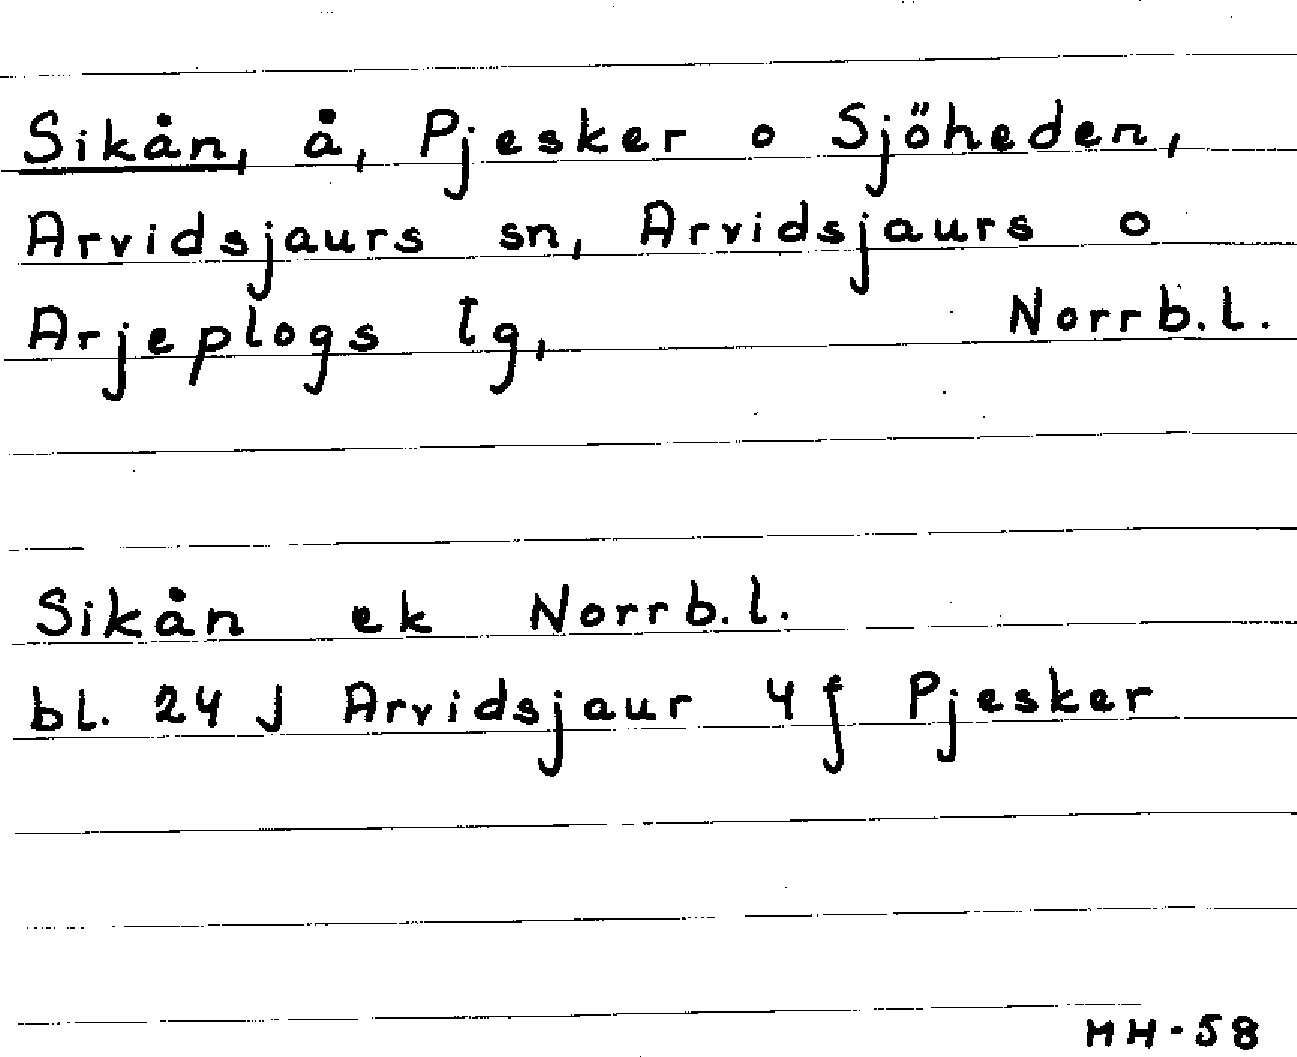 Sikån, å, Pjesker o Sjöheden,
Arvidsjaurs sn, Arvidsjaurs o
Arjeplogs lg, Norrb.l.
Sikån ek Norrb.l.
bl. 24 J Arvidsjaur 4 f Pjesker
MH-58